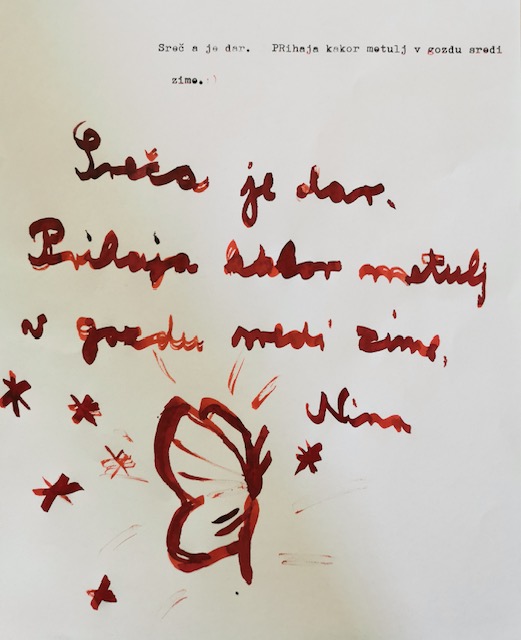 Sreč a je dar. PRihaja kakor metulj v gozdu sredi
zime.
Sreča je dar.
Prihaja kakor metulj
v gozdu sredi zime,
Nina